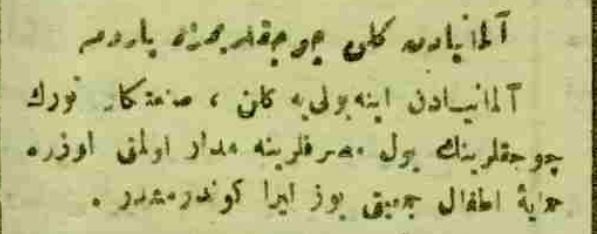 آلمانیادن کلن چوجقلریمزه یاردم
آلمانیادن اینه‌بولی‌یه کلن ، صنعتکار تورك
چوجقلرینك یول مصرفلرینه مدار اولمق اوزره
حمایهٔ اطفال جمعیتی یوز لیرا کوندرمشدر .